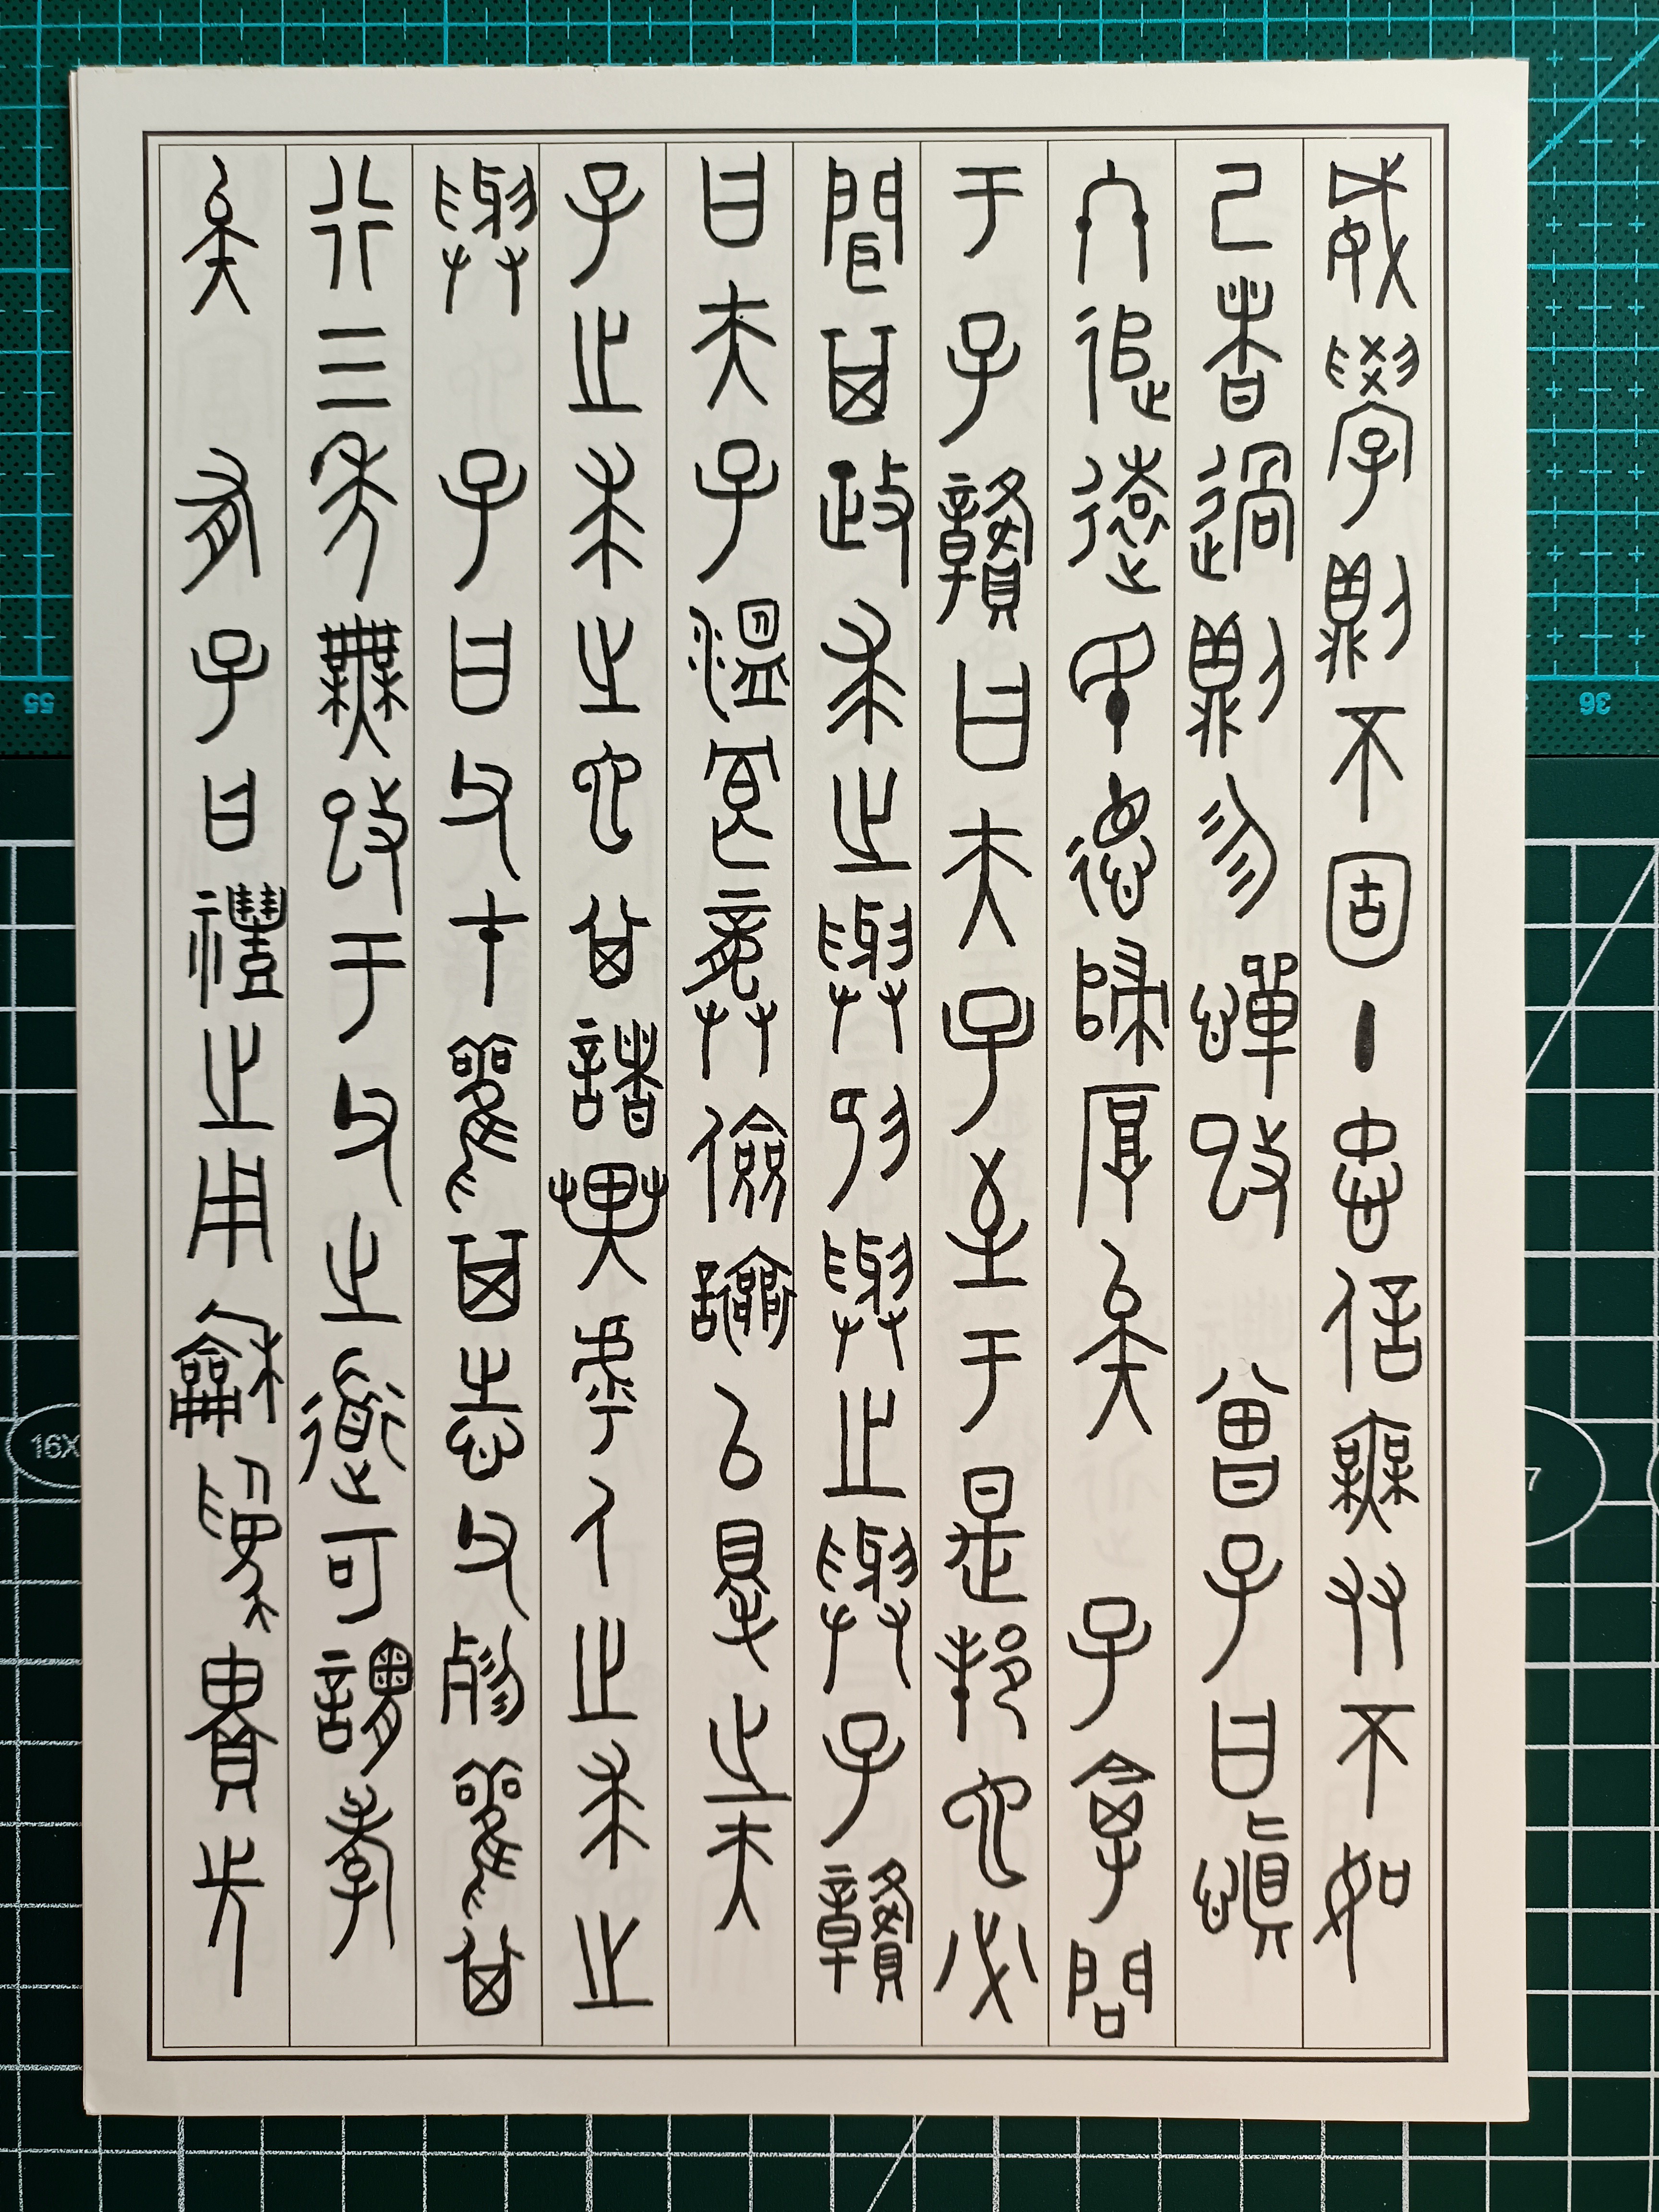 威學則不固主忠信無友不如
己者過則勿憚改 曾子曰慎
終追遠民德歸厚矣 子禽問
于子贛曰夫子至于是邦也必
聞其政求之與抑與之與子贛
曰夫子溫良恭儉讓以得之夫
子之求之也其諸異乎人之求之
與 子曰父在觀其志父沒觀其
行三年無改于父之道可謂孝
矣 有子曰禮之用龢為貴先